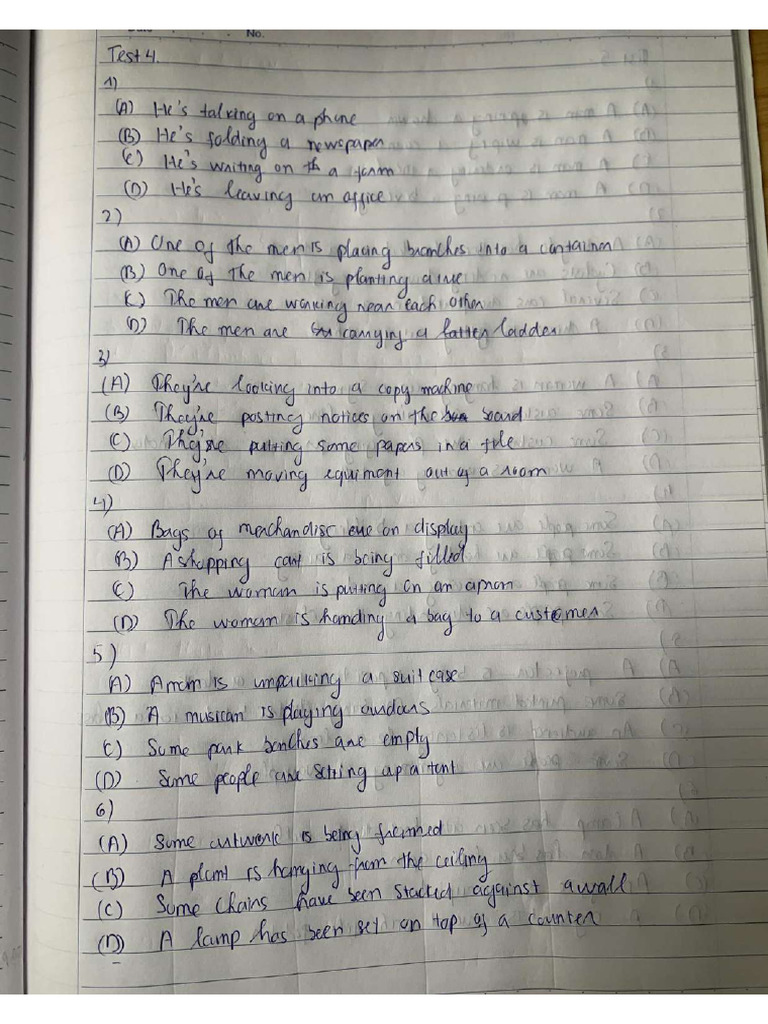 No.
Test 4.
1)
(A) He's talking on a phone
(B) He's folding a newspaper
(C) He's writing on a form
(D) He's leaving an office
2)
(A) One of the men is placing branches into a container
(B) One of the men is planting a tree
(C) The men are working near each other
(D) The men are carrying a ladder
3)
(A) They're looking into a copy machine
(B) They're posting notices on the board
(C) They're putting some papers in a file
(D) They're moving equiment out of a room
4)
(A) Bags of merchandise are on display
(B) A shopping cart is being filled
(C) The woman is putting on an apron
(D) The woman is handing a bag to a customer
5)
(A) A man is unpacking a suitcase
(B) A musican is playing outdoors
(C) Some park benches are empty
(D) Some people are setting up a tent
6)
(A) Some artwork is being framed
(B) A plant is hanging from the ceiling
(C) Some chairs have been stacked against a wall
(D) A lamp has been set on top of a counter